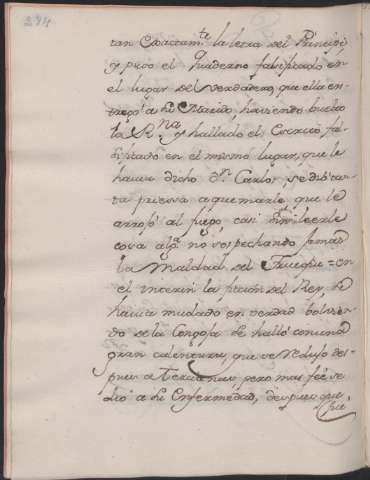 274
tan Exactam.te la letra del Principe
y puso el Quaderno falsificado en
el lugar del verdadero, que ella en-
tregó a su Marido, haviendo buelto
la R.na y hallado el Escrito fal-
sificado en el mismo lugar, que le
havia dicho D.n Carlos, se dió tan-
ta priessa a quemarlo, que le
arrojó al fuego, casi sin leerle
cosa alg.a no sospechando jamas
la Maldad del Trueque = en
el interin la pacion del Rey, se
havia mudado en verdad bolvien-
do de la Congoja se halló con una
gran calentura, que se reduso des-
pues a tercianas pero mas fee se
dió a su Enfermedad, despues que